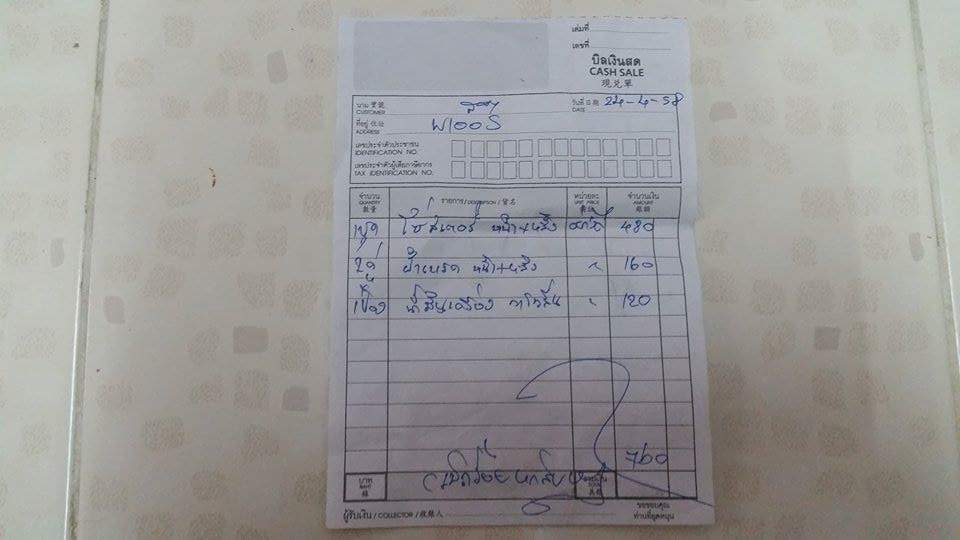 เล่มที่
เลขที่
บิลเงินสด
CASH SALE
現兑單
นาม 寶號
CUSTOMER
วันที่ 日期 24-4-58
DATE
ที่อยู่ 住址
ADDRESS
เลขประจำตัวประชาชน
IDENTIFICATION NO.
เลขประจำตัวผู้เสียภาษีอากร
TAX IDENTIFICATION NO.
จำนวน รายการ / DESCRIPTION / 貨名 หน่วยละ จำนวนเงิน
QUANTITY UNIT PRICE AMOUNT
數量 銀額
1ชุด ใบสเตอร์ หน้า+หลัง 480
2คู่ ผ้าเบรค หน้า+หลัง 160
น้ำมันเครื่อง 120
760
บาท
BAHT
銖
ผู้รับเงิน / COLLECTOR / 收銀人
ขอขอบคุณ
ท่านที่อุดหนุน